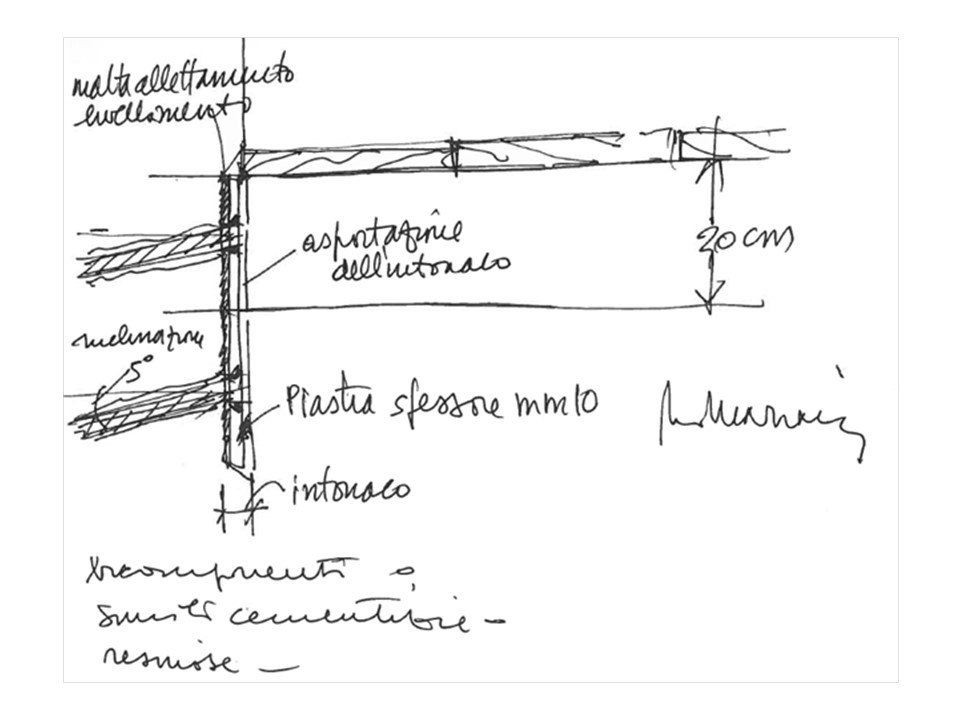 malta allettamento
livellamento
asportazione
dell'intonaco
20 cm
inclinazione
5°
Piastra spessore mm 10
intonaco
bicomponenti o
simili cementizie -
resinose -